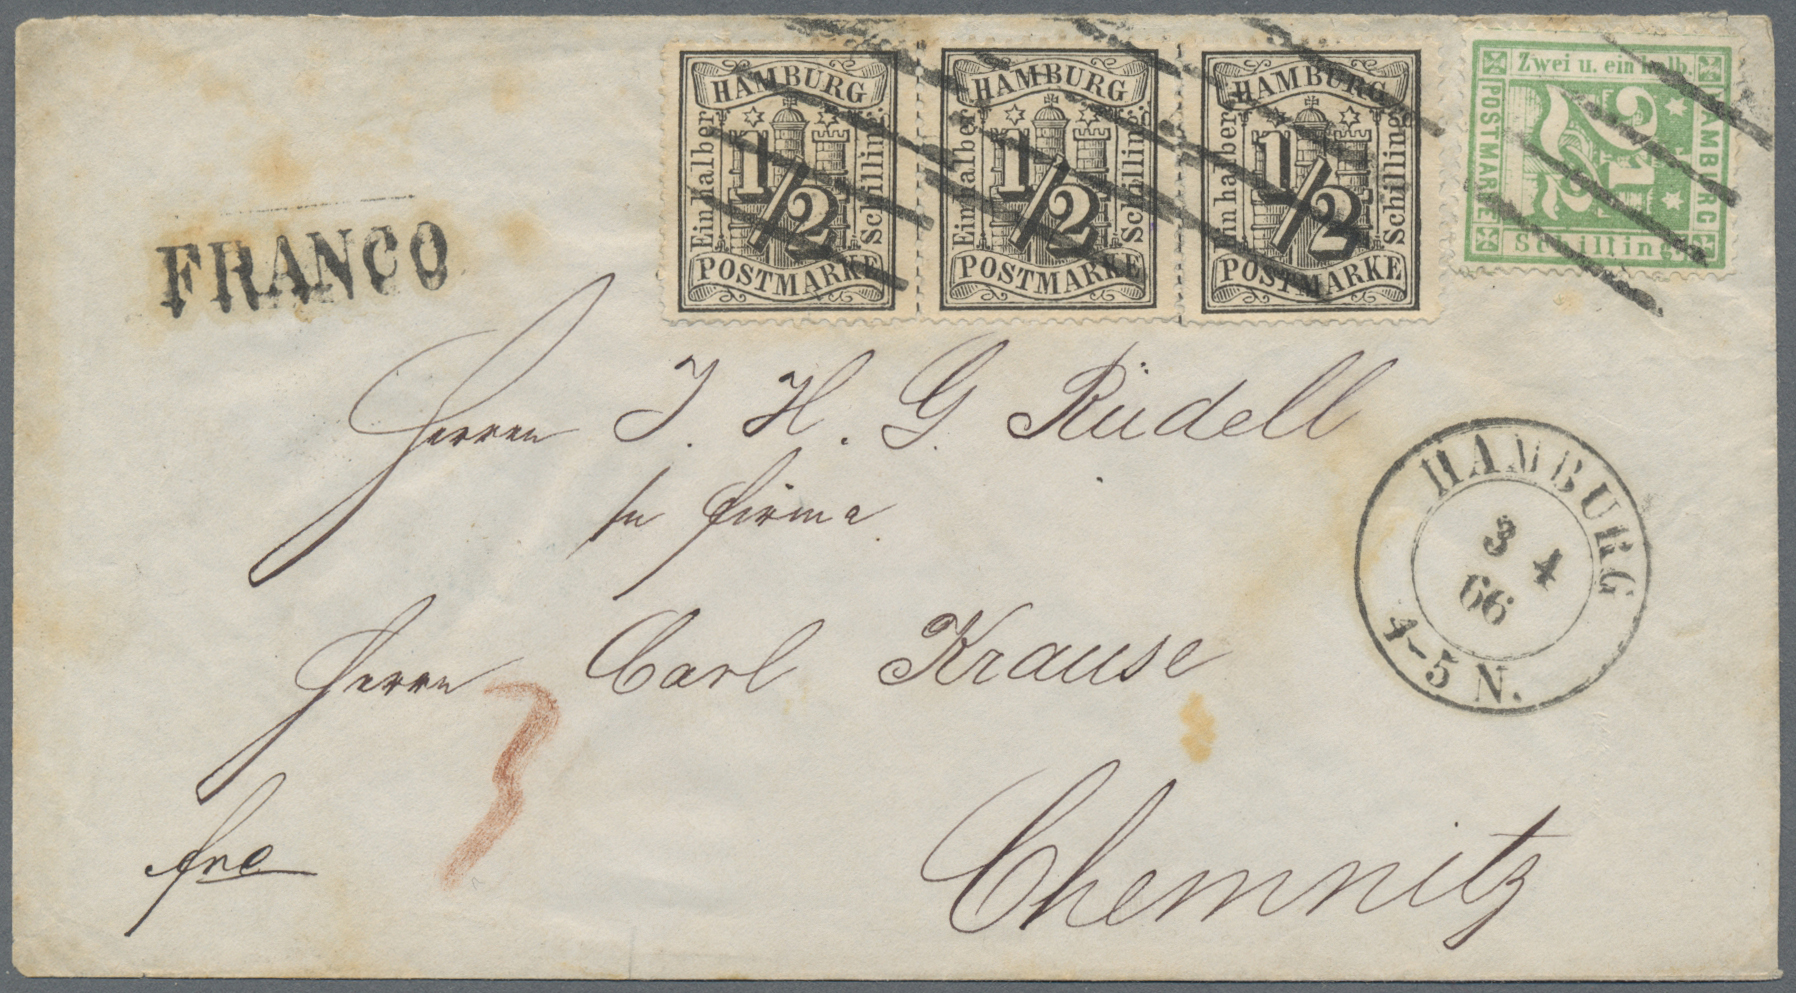 HAMBURG
Ein halber
1/2
Schilling
POSTMARKE
HAMBURG
Ein halber
1/2
Schilling
POSTMARKE
HAMBURG
Ein halber
1/2
Schilling
POSTMARKE
Zwei u. ein halb.
POSTMARKE
2 1/2
HAMBURG
Schilling
FRANCO
Herren J. H. G. Rüdell
in firma
Herrn Carl Krause
3
HAMBURG
3 4
66
4-5 N.
frc
Chemnitz